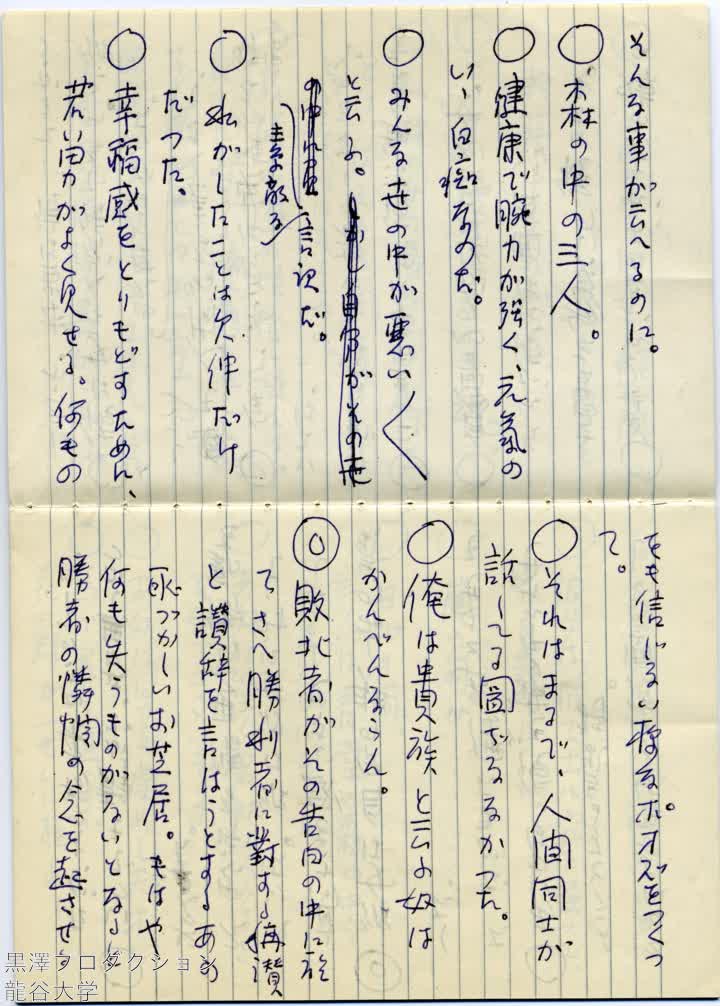 そんな事が云へるのに。
○ 森の中の三人。
○ 健康で腕力が強く、元氣の
いゝ白痴なのだ。
○ みんな世の中が悪い〱
と云ふ。しかし自分がその世
の中れ
言訳だ。
○ 私がしたことは欠伸だけ
だつた。
○ 幸福感をとりもどすために、
若い男がよく見せる。何もの
をも信じない様なポオズをつくつ
て。
○ それはまるで、人間同士が
話してる図ぢなかつた。
○ 俺は貴族と云ふ奴は
かんべんならん。
◎ 敗北者がその告白の中に於
てさへ勝利者に對する稱讃
と讃辞を言はうとするあの
恥づかしいお芝居。もはや
何も失うものがないとなるに
勝者の憐憫の念を起させる
黒澤プロダクション
龍谷大学